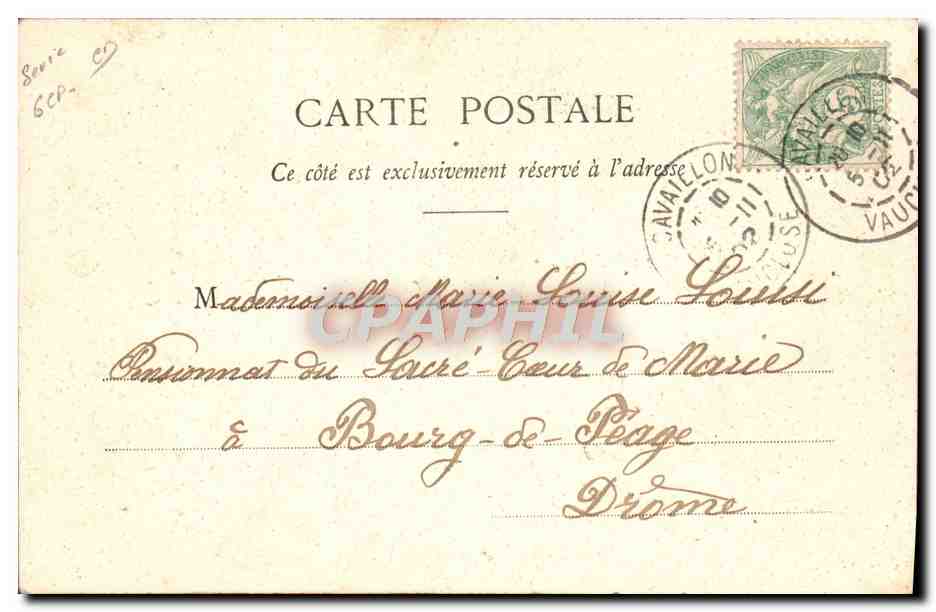 Serie CD
6 CP-
CARTE POSTALE
Ce côté est exclusivement réservé à l'adresse
CAVAILLON
10
-11
02
VAUCLUSE
CAVAILLON
10
-11
02
VAUCL
Mademoiselle Marie Louise Louisi
CPAPHIL
Pensionnat du Sacré-Cœur de Marie
à Bourg-de-Péage
Drôme